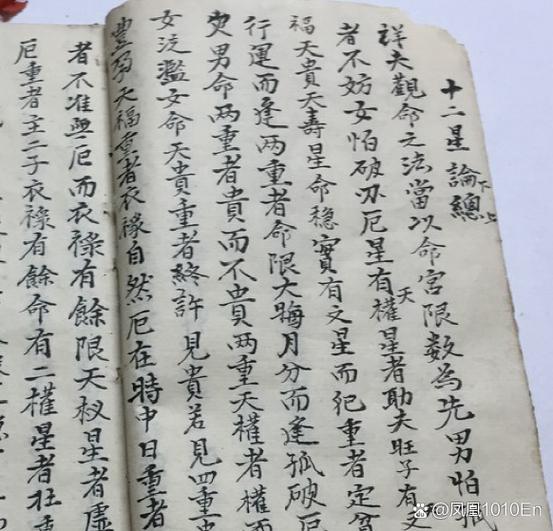 十二星論總下上
祥夫觀命之法當以命宮限数為先男怕
者不妨女怕破刃厄星有權星者天助夫旺子有文
福天貴天壽星命穩實有文星而犯重者定
行運而逢两重者命限大晦月分而逢孤破厄
男命两重者貴而不貴两重天權者權
女泛濫女命天貴重者終許見貴若見四重
豊孕天福重者衣祿自然厄在時中日重者
者不准與厄而衣祿有餘限天权星者虛
厄重者主二子衣祿有餘命有二權星者狂
@凤凰1010En